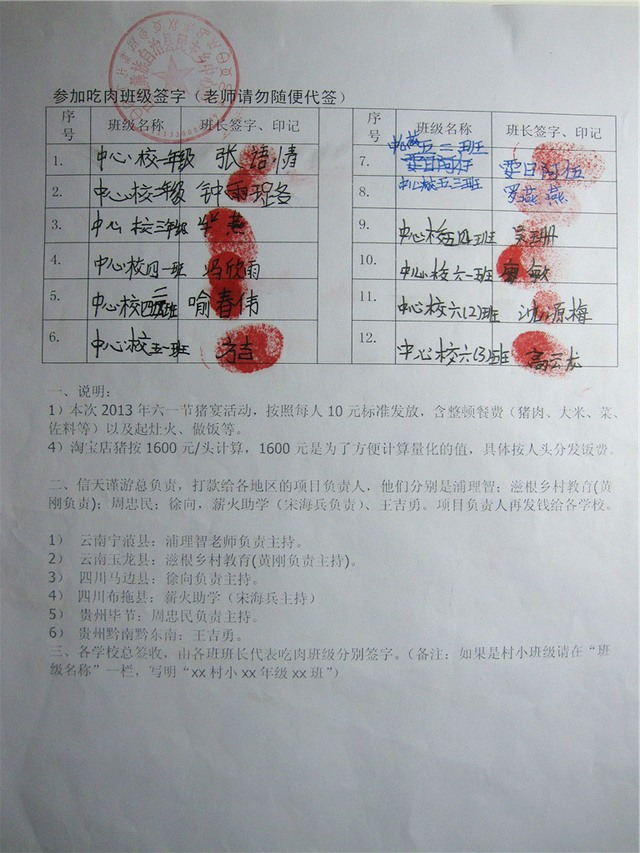 参加吃肉班级签字（老师请勿随便代签）
序号 班级名称 班长签字、印记
1. 中心校一年级
2. 中心校二年级
3. 中心校三年级
4. 中心校四一班 冯欣雨
5. 中心校四二班 喻春伟
6. 中心校五一班 方吉
序号 班级名称 班长签字、印记
7. 五二班
8. 中心校五三班 罗燕燕
9. 中心校五四班
10. 中心校六一班
11. 中心校六(2)班 沈源梅
12. 中心校六(3)班 高云龙
一、说明：
1）本次 2013 年六一节猪宴活动，按照每人 10 元标准发放，含整顿餐费（猪肉、大米、菜、
佐料等）以及起灶火、做饭等。
4）淘宝店猪按 1600 元/头计算，1600 元是为了方便计算量化的值，具体按人头分发饭费。
二、信天谨游总负责，打款给各地区的项目负责人，他们分别是浦理智；滋根乡村教育(黄
刚负责)；周忠民；徐向，薪火助学（宋海兵负责）、王吉勇。项目负责人再发钱给各学校。
1） 云南宁蒗县：浦理智老师负责主持。
2） 云南玉龙县：滋根乡村教育(黄刚负责主持)。
3） 四川马边县：徐向负责主持。
4） 四川布拖县：薪火助学（宋海兵主持）
5） 贵州毕节：周忠民负责主持。
6） 贵州黔南黔东南：王吉勇。
三、各学校总签收，由各班班长代表吃肉班级分别签字。（备注：如果是村小班级请在“班
级名称”一栏，写明“xx 村小 xx 年级 xx 班”）